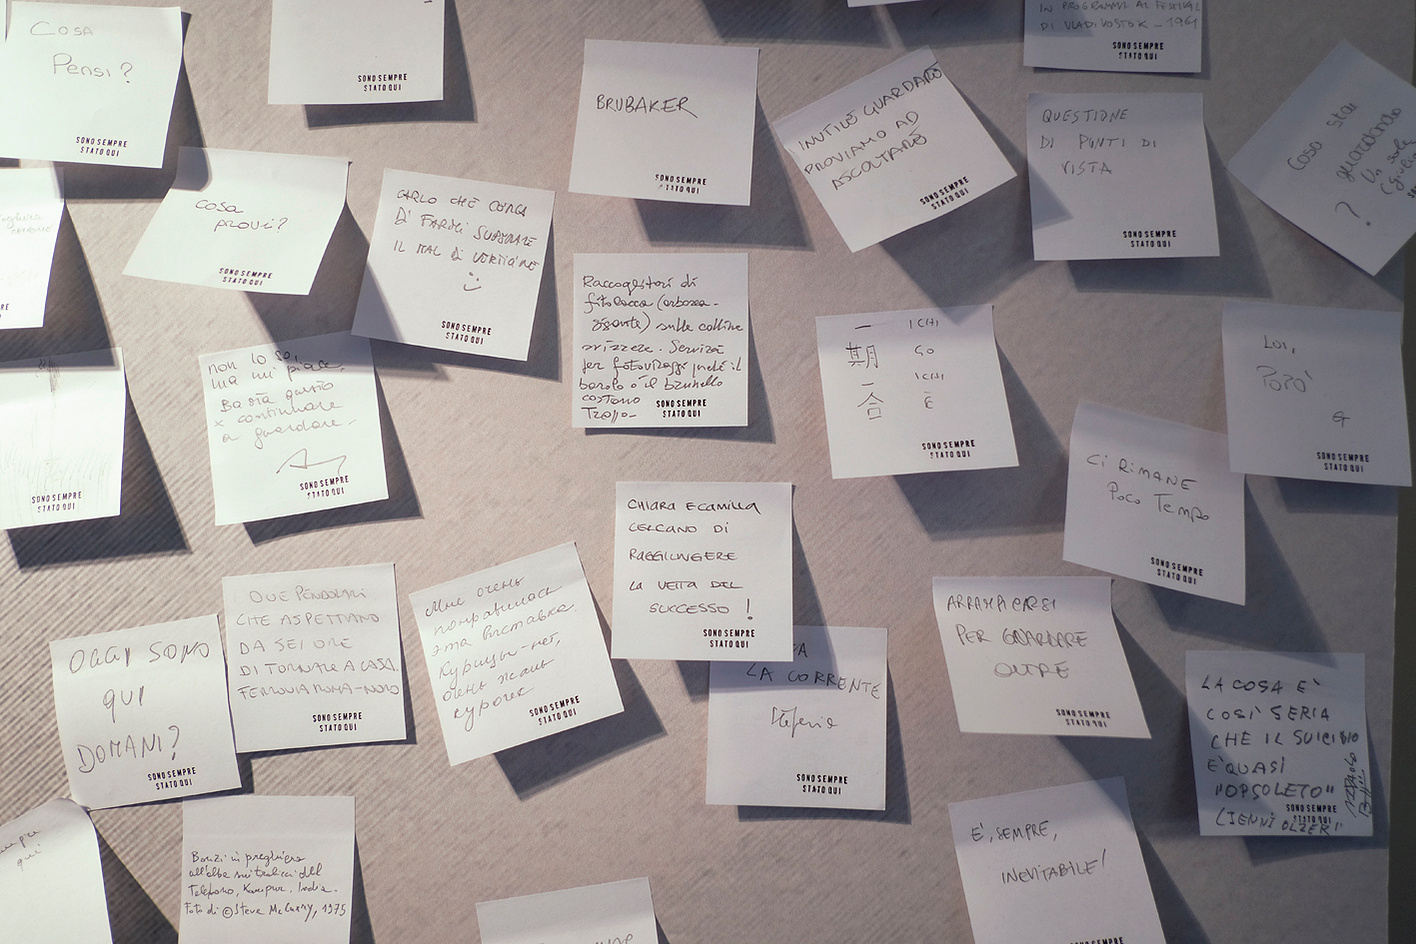 COSA
PENSI?
SONO SEMPRE
STATO QUI
SONO SEMPRE
STATO QUI
BRUBAKER
SONO SEMPRE
STATO QUI
INUTILE GUARDARE
PROVIAMO AD
ASCOLTARE
SONO SEMPRE
STATO QUI
IN PROGRAMMA AL FESTIVAL
DI VLADIVOSTOK - 1961
SONO SEMPRE
STATO QUI
QUESTIONE
DI PUNTI DI
VISTA
SONO SEMPRE
STATO QUI
Cosa stai
guardando
?
Un sole
COSA
PROVI?
SONO SEMPRE
STATO QUI
CARLO CHE CERCA
DI FARGLI SUPERARE
IL MAL DI VERTIGINE
SONO SEMPRE
STATO QUI
Raccoglitori di
fitolacca (arborea-
gigante) sulle colline
svizzere. Servirà
per fotovoltaggi perché il
barolo o il brunello
costano
Troppo-
SONO SEMPRE
STATO QUI
一 ICHI
期 GO
一 ICHI
合 E
SONO SEMPRE
STATO QUI
LUI,
POPO'
G
SONO SEMPRE
STATO QUI
non lo so,
ma mi piace,
Basta questo
x continuare
a guardare-
SONO SEMPRE
STATO QUI
SONO SEMPRE
STATO QUI
CI RIMANE
POCO TEMPO
SONO SEMPRE
STATO QUI
CHIARA E CAMILLA
CERCANO DI
RAGGIUNGERE
LA VETTA DEL
SUCCESSO !
SONO SEMPRE
STATO QUI
OGGI SONO
QUI
DOMANI?
SONO SEMPRE
STATO QUI
DUE PENDOLARI
CHE ASPETTANO
DA SEI ORE
DI TORNARE A CASA.
FERROVIA ROMA-NORD
SONO SEMPRE
STATO QUI
Мне очень
понравилась
эта выставка.
Курицы-нет,
очень жаль
курочек
SONO SEMPRE
STATO QUI
LA CORRENTE
Stefania
SONO SEMPRE
STATO QUI
ARRAMPICARSI
PER GUARDARE
OLTRE
SONO SEMPRE
STATO QUI
LA COSA E'
COSI' SERIA
CHE IL SUICIDIO
E' QUASI
"OPSOLETO"
(JENNI OLZER)
SONO SEMPRE
STATO QUI
E', SEMPRE,
INEVITABILE!
SONO SEMPRE
Bonzi in preghiera
all'alba sui tralicci del
Telefono, Kanpur, India.
Foto di ©Steve McCurry, 1975